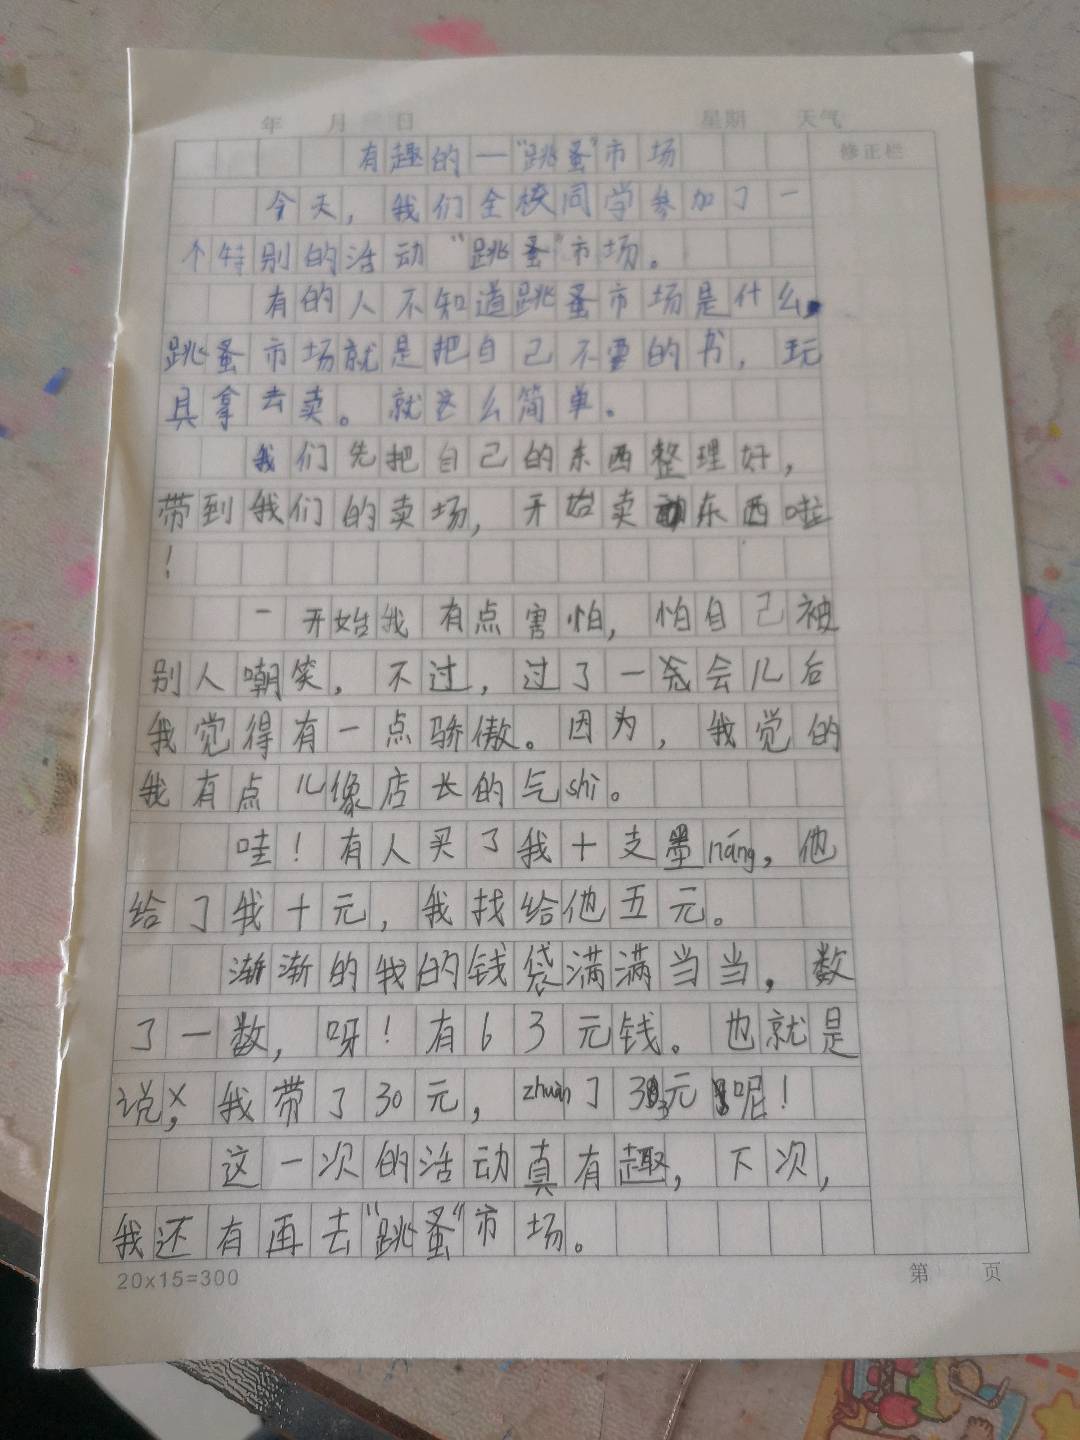 年 月 日 星期 天气
有趣的一"跳蚤"市场 修正栏
今天，我们全校同学参加了一
个特别的活动"跳蚤"市场。
有的人不知道跳蚤市场是什么，
跳蚤市场就是把自己不要的书，玩
具拿去卖。就这么简单。
我们先把自己的东西整理好，
带到我们的卖场，开始卖东西啦
！
一开始我有点害怕，怕自己被
别人嘲笑，不过，过了一会儿后
我觉得有一点骄傲。因为，我觉的
我有点儿像店长的气shi。
哇！有人买了我十支墨náng，他
给了我十元，我找给他五元。
渐渐的我的钱袋满满当当，数
了一数，呀！有63元钱。也就是
说，我带了30元，zhuàn了33元呢！
这一次的活动真有趣，下次，
我还有再去"跳蚤"市场。
20x15=300 第 页